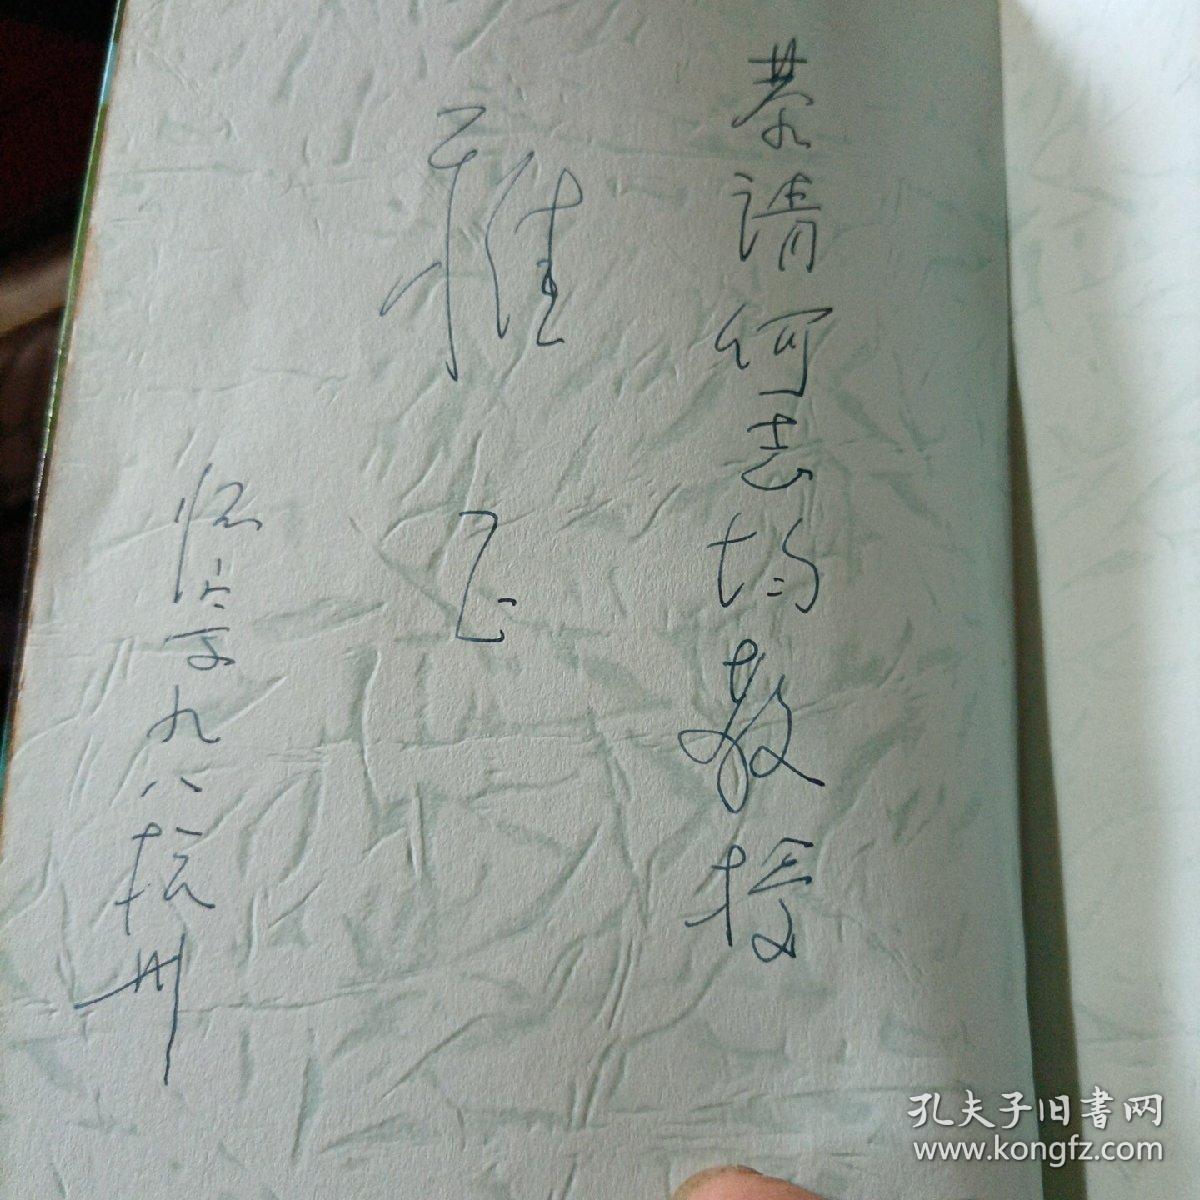 恭请何志均教授
雅正
怀
九八杭州
孔夫子旧書网
www.kongfz.com